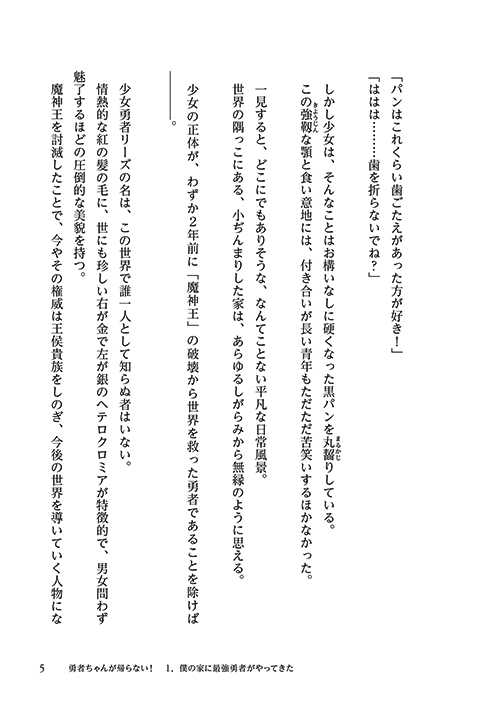 「パンはこれくらい歯ごたえがあった方が好き！」
「ははは………歯を折らないでね？」
しかし少女は、そんなことはお構いなしに硬くなった黒パンを丸齧りしている。
この強靱な顎と食い意地には、付き合いが長い青年もただただ苦笑いするほかなかった。
一見すると、どこにでもありそうな、なんてことない平凡な日常風景。
世界の隅っこにある、小ぢんまりした家は、あらゆるしがらみから無縁のように思える。
少女の正体が、わずか２年前に「魔神王」の破壊から世界を救った勇者であることを除けば
―――。
少女勇者リーズの名は、この世界で誰一人として知らぬ者はいない。
情熱的な紅の髪の毛に、世にも珍しい右が金で左が銀のヘテロクロミアが特徴的で、男女問わず
魅了するほどの圧倒的な美貌を持つ。
魔神王を討滅したことで、今やその権威は王侯貴族をしのぎ、今後の世界を導いていく人物にな
5 勇者ちゃんが帰らない！ 1．僕の家に最強勇者がやってきた